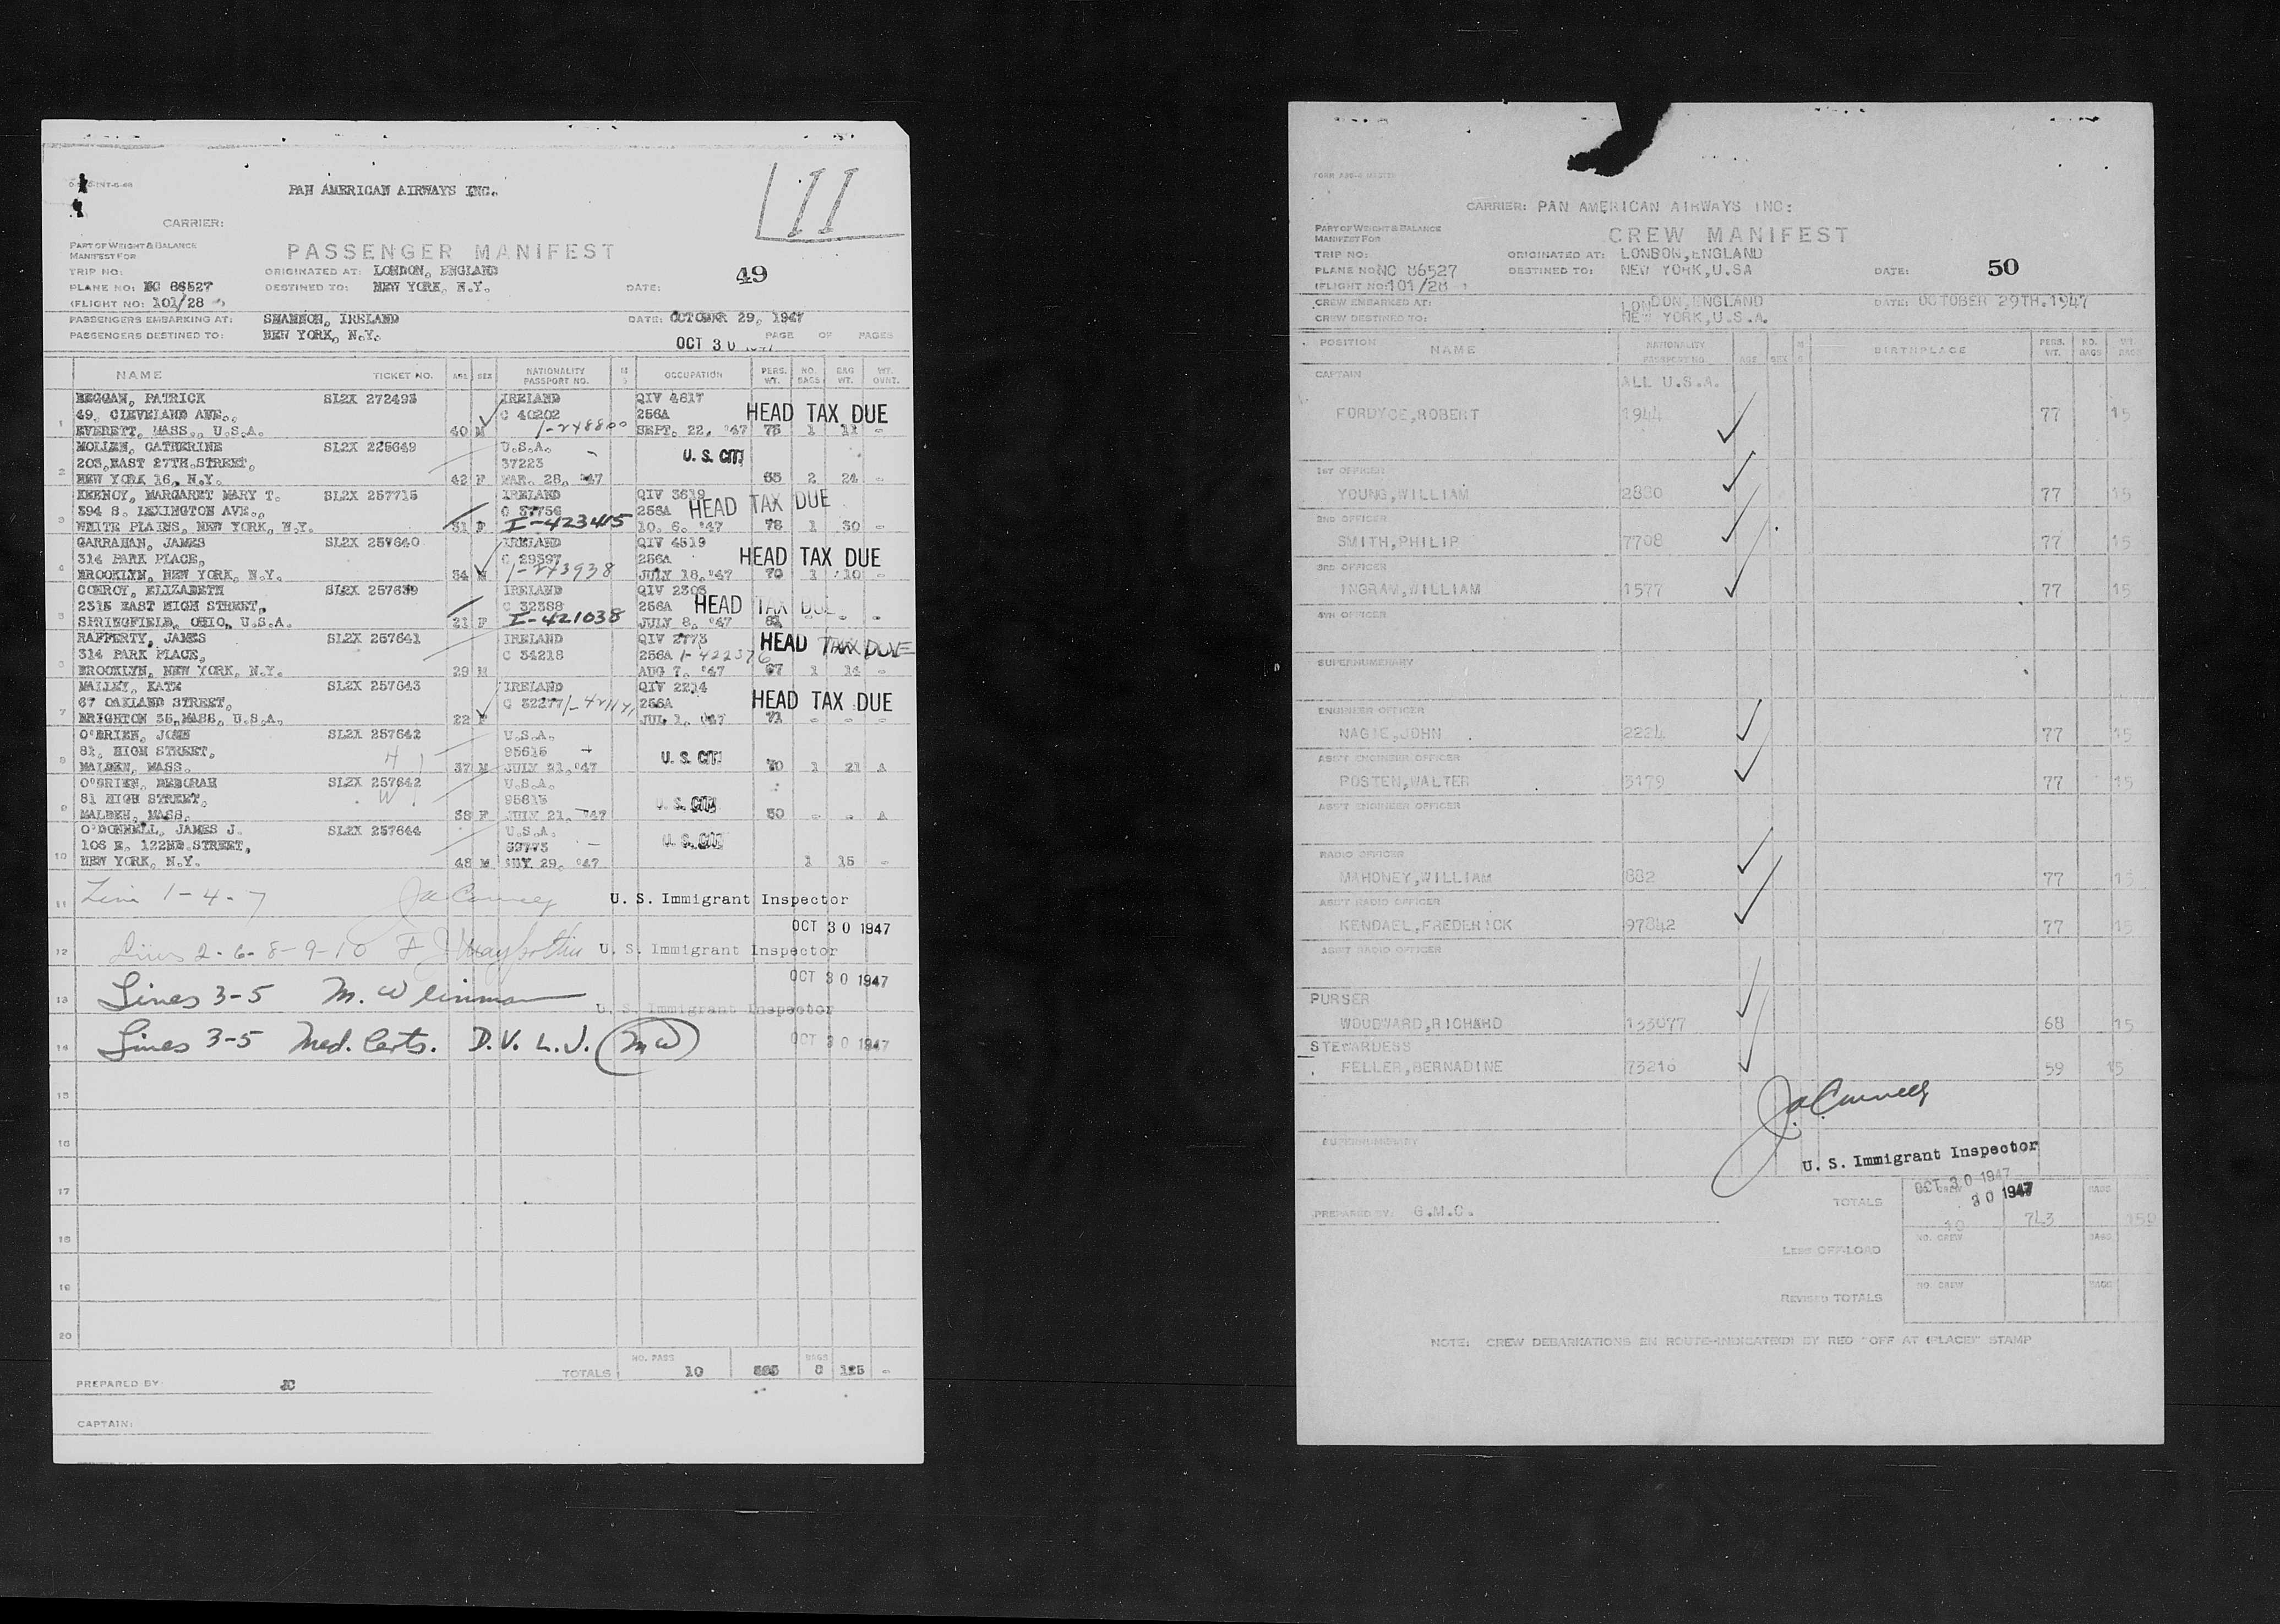 PAN AMERICAN AIRWAYS INC.
11
CARRIER:
PART OF WEIGHT & BALANCE
MANIFEST FOR
PASSENGER MANIFEST
TRIP NO:
ORIGINATED AT: LONDON, ENGLAND
49
PLANE NO: NC 86527
DESTINED TO: NEW YORK, N.Y.
DATE:
(FLIGHT NO: 101/28
PASSENGERS EMBARKING AT: SHANNON, IRELAND
DATE: OCTOBER 29, 1947
PASSENGERS DESTINED TO: NEW YORK, N.Y.
PAGE OF PAGES
OCT 30
NAME TICKET NO. AGE SEX NATIONALITY PASSPORT NO. OCCUPATION PERS. WT. NO. BAGS BAG WT. WT. OVNT.
BEGGAN, PATRICK SL2X 272493 IRELAND QIV 4617
49, CLEVELAND AVE., C 40202 256A HEAD TAX DUE
1 EVERETT, MASS., U.S.A. 40 M 1-248800 SEPT. 22, '47 75 1 11 -
MOLLEN, CATHERINE SL2X 225649 U.S.A.
203, EAST 27TH.STREET, 37223 U. S. CIT
2 NEW YORK 16, N.Y. 42 F MAR. 28, '47 65 2 24 -
KEENOY, MARGARET MARY T. SL2X 257715 IRELAND QIV 3619
394 S. LEXINGTON AVE., C 37756 256A HEAD TAX DUE
3 WHITE PLAINS, NEW YORK, N.Y. 31 F I-423415 10. 6. '47 78 1 30 -
GARRAHAN, JAMES SL2X 257640 IRELAND QIV 4519
314 PARK PLACE, C 29597 256A HEAD TAX DUE
4 BROOKLYN, NEW YORK, N.Y. 34 M 1-243938 JULY 18, '47 70 1 10 -
CONROY, ELIZABETH SL2X 257639 IRELAND QIV 2303
2315 EAST HIGH STREET, C 32388 256A HEAD TAX DUE
5 SPRINGFIELD, OHIO, U.S.A. 21 F I-421038 JULY 8, '47 - - -
RAFFERTY, JAMES SL2X 257641 IRELAND QIV 2773
314 PARK PLACE, C 34218 256A 1-422376 HEAD TAX DUE
6 BROOKLYN, NEW YORK, N.Y. 29 M AUG 7, '47 67 1 14 -
MALLEY, KATE SL2X 257643 IRELAND QIV 2214
67 OAKLAND STREET, C 32277 256A HEAD TAX DUE
7 BRIGHTON 35, MASS, U.S.A. 22 F JUL 1, '47 71 - - -
O'BRIEN, JOHN SL2X 257642 U.S.A.
81, HIGH STREET, H 95615 U. S. CIT
8 MALDEN, MASS. 37 M JULY 21, '47 70 1 21 A
O'BRIEN, DEBORAH SL2X 257642 U.S.A.
81 HIGH STREET, W 95615 U. S. CIT
9 MALDEN, MASS. 38 F JULY 21, '47 50 - - A
O'DONNELL, JAMES J. SL2X 257644 U.S.A.
106 E. 122ND.STREET, U. S. CIT
10 NEW YORK, N.Y. 48 M 29, '47 1 15 -
11 Line 1-4-7 U. S. Immigrant Inspector
OCT 30 1947
12 Lines 2-6-8-9-10 U. S. Immigrant Inspector
OCT 30 1947
13 Lines 3-5 M. Weinman U. S. Immigrant Inspector
14 Lines 3-5 Med. Certs. D.V.L.J. MW OCT 30 1947
15
16
17
18
19
20
TOTALS NO. PASS 10 BAGS 8 125 -
PREPARED BY JC
CAPTAIN:
CARRIER: PAN AMERICAN AIRWAYS INC:
PART OF WEIGHT & BALANCE
MANIFEST FOR
CREW MANIFEST
TRIP NO: ORIGINATED AT: LONDON, ENGLAND
PLANE NO: NC 86527 DESTINED TO: NEW YORK, U.SA DATE: 50
(FLIGHT NO: 101/28
CREW EMBARKED AT: LONDON, ENGLAND DATE: OCTOBER 29TH, 1947
CREW DESTINED TO: NEW YORK, U.S.A.
POSITION NAME NATIONALITY PASSPORT NO. AGE SEX BIRTHPLACE PERS. WT. NO. BAGS WT. BAGS
CAPTAIN ALL U.S.A.
FORDYCE, ROBERT 1944 77 15
1ST OFFICER
YOUNG, WILLIAM 2880 77 15
2ND OFFICER
SMITH, PHILIP 7708 77 15
3RD OFFICER
INGRAM, WILLIAM 1577 77 15
4TH OFFICER
SUPERNUMERARY
ENGINEER OFFICER
NAGIE, JOHN 2224 77 15
ASS'T ENGINEER OFFICER
POSTEN, WALTER 3179 77 15
ASS'T ENGINEER OFFICER
RADIO OFFICER
MAHONEY, WILLIAM 882 77 15
ASS'T RADIO OFFICER
KENDAEL, FREDERICK 97842 77 15
ASS'T RADIO OFFICER
PURSER
WOODWARD, RICHARD 133077 68 15
STEWARDESS
FELLER, BERNADINE 73216 59 15
SUPERNUMERARY
U. S. Immigrant Inspector
OCT 30 1947
30 1947
PREPARED BY: G.M.C.
TOTALS 10 743 150
LESS OFF-LOAD NO. CREW BAGS
REVISED TOTALS NO. CREW BAGS
NOTE: CREW DEBARKATIONS EN ROUTE-INDICATE(D) BY RED "OFF AT (PLACE)" STAMP